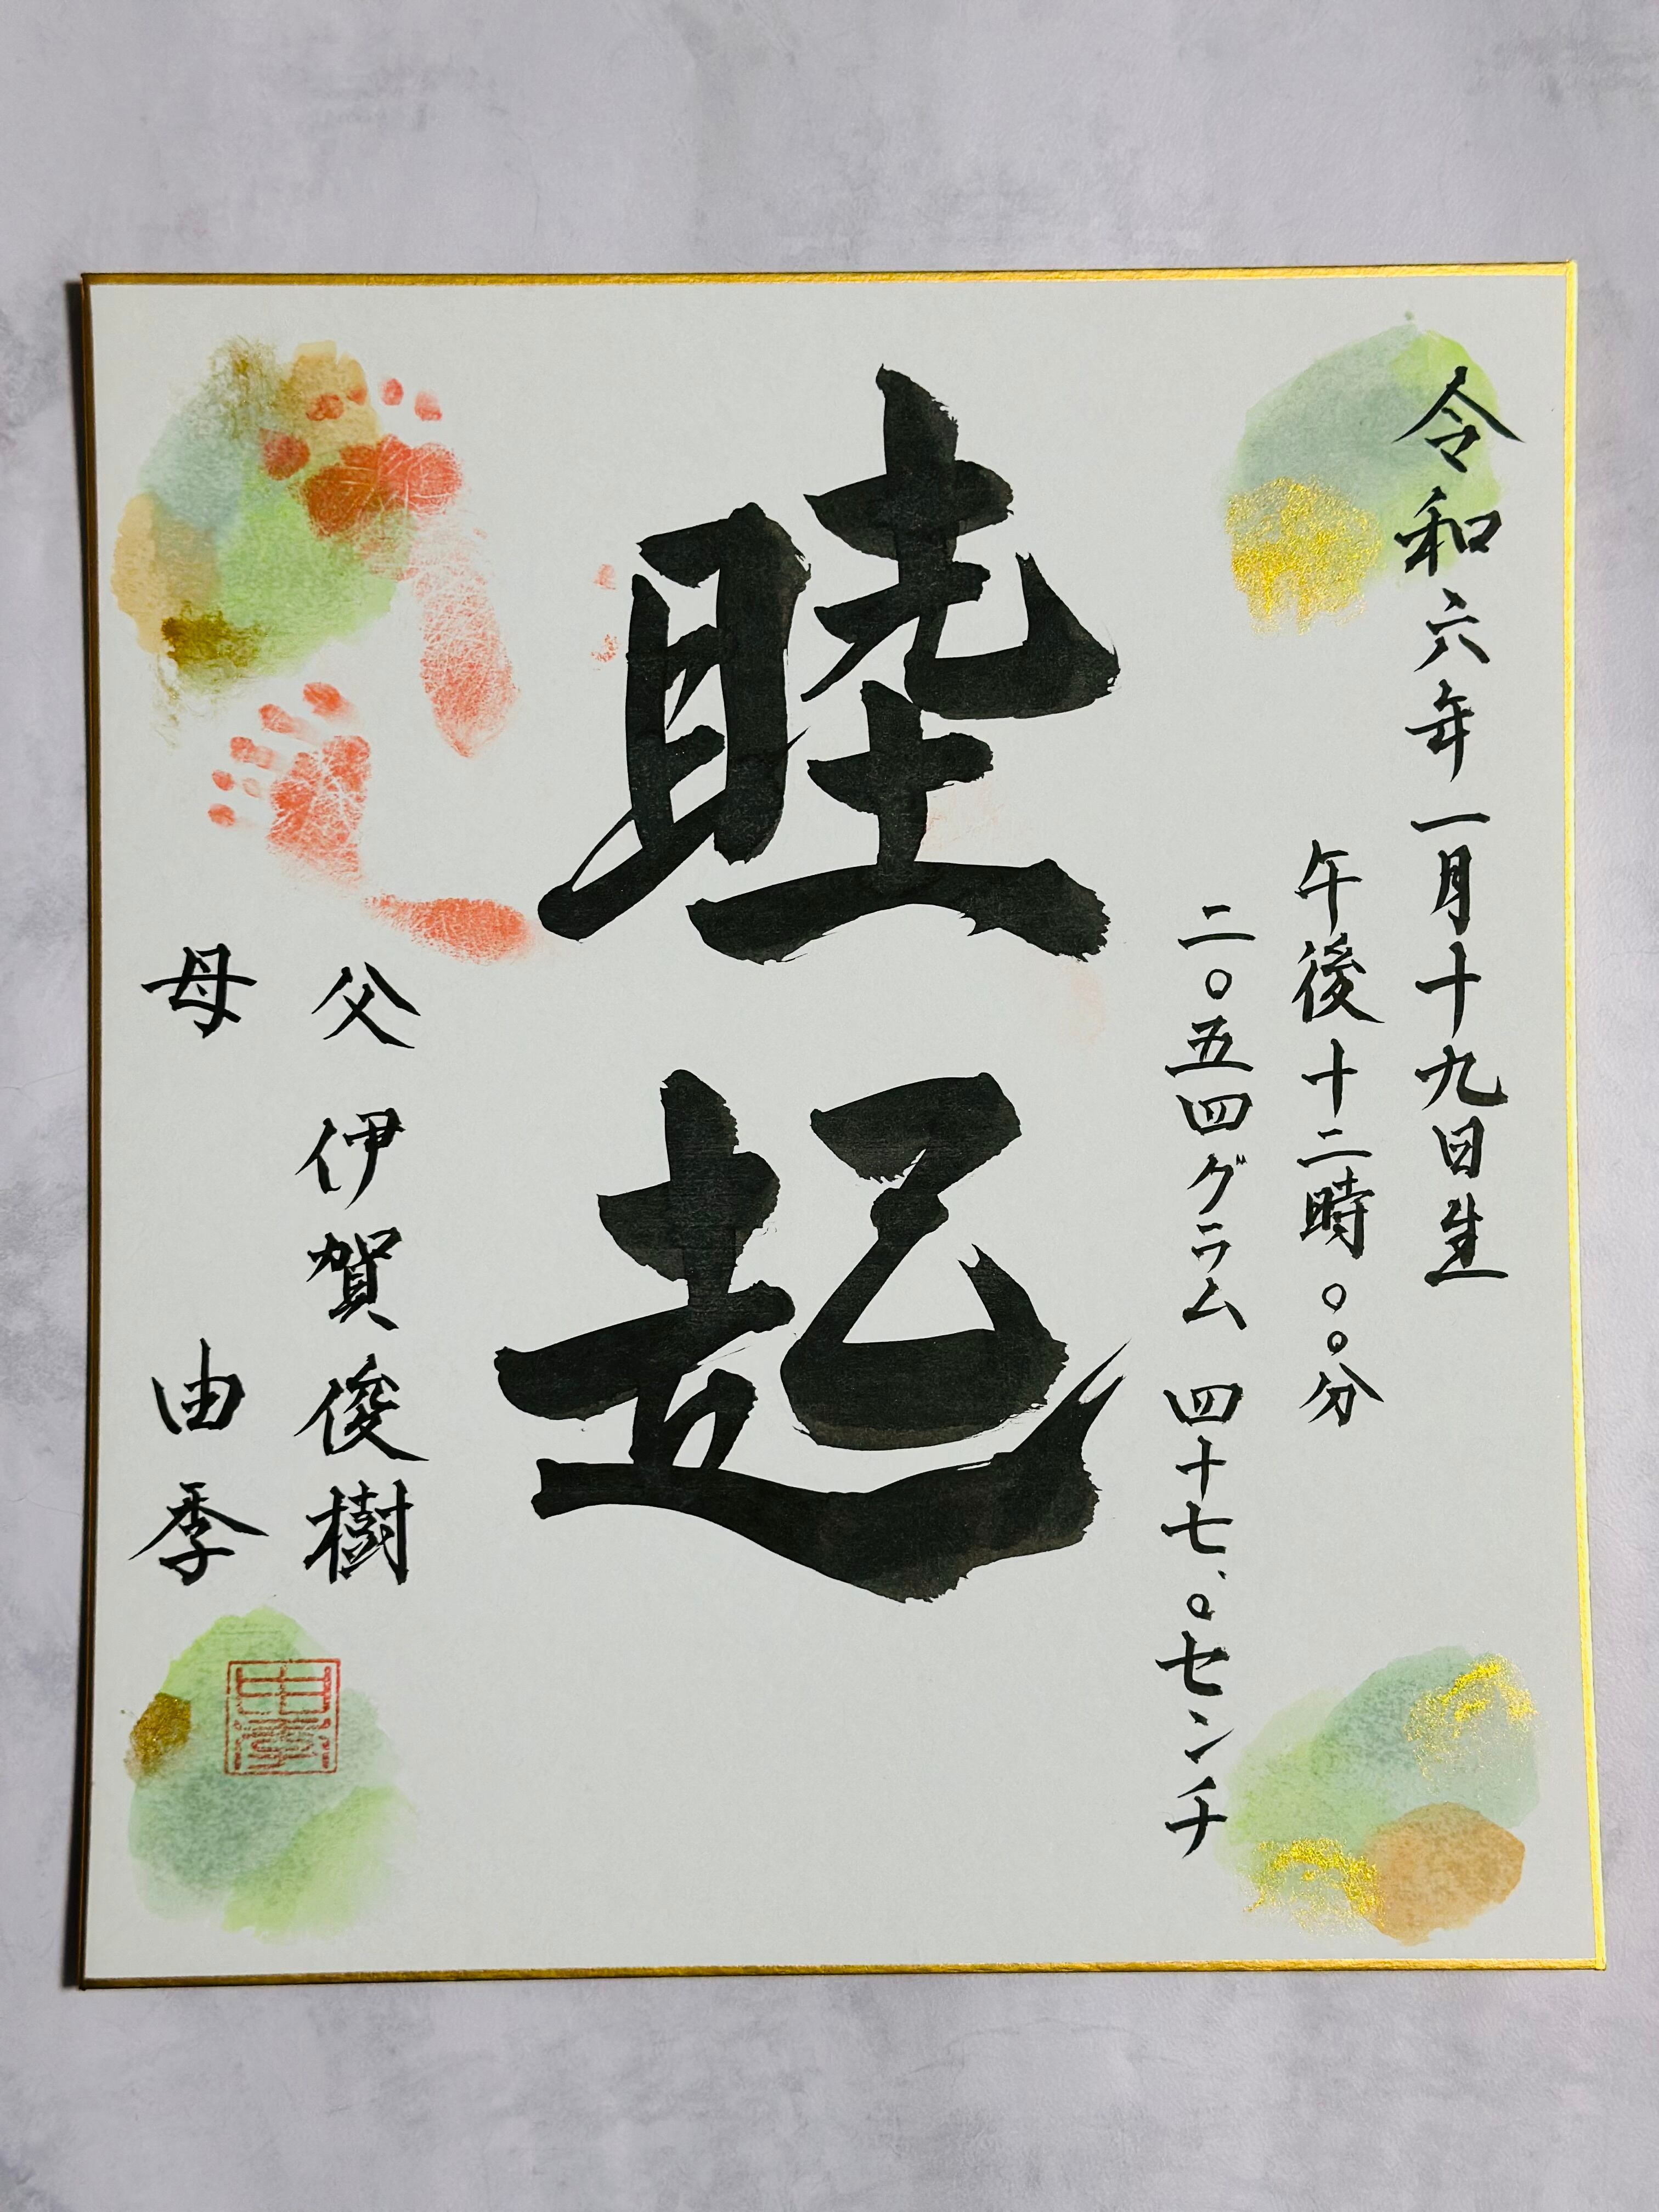 令和六年一月十九日生
午後十二時〇〇分
二〇五四グラム 四十七.〇センチ
睦起
父 伊賀俊樹
母 由季
由季